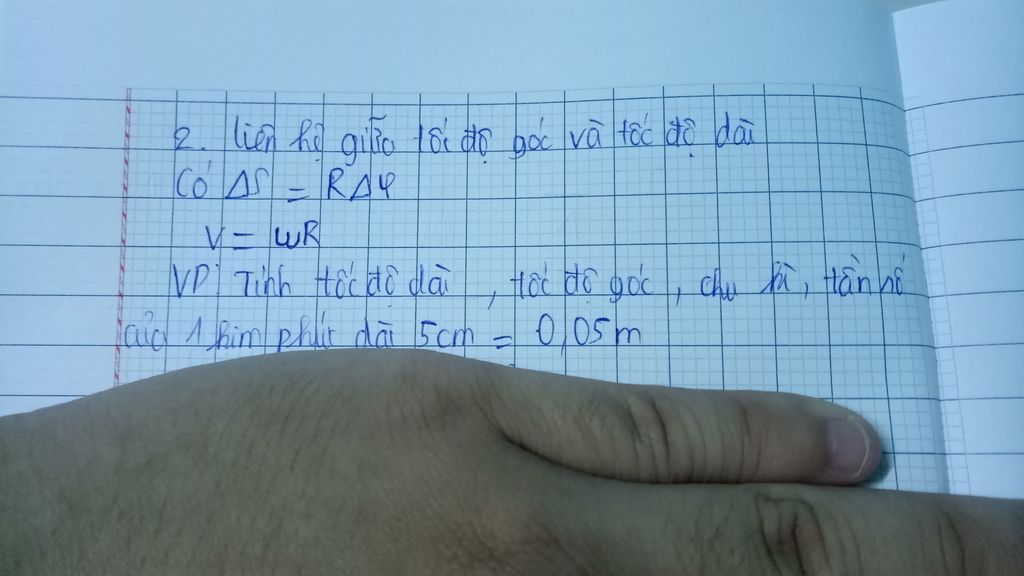 2. liên hệ giữa tốc độ góc và tốc độ dài
Có ΔS = RΔφ
V = ωR
VD: Tính tốc độ dài, tốc độ góc, chu kì, tần số
của 1 kim phút dài 5cm = 0,05m